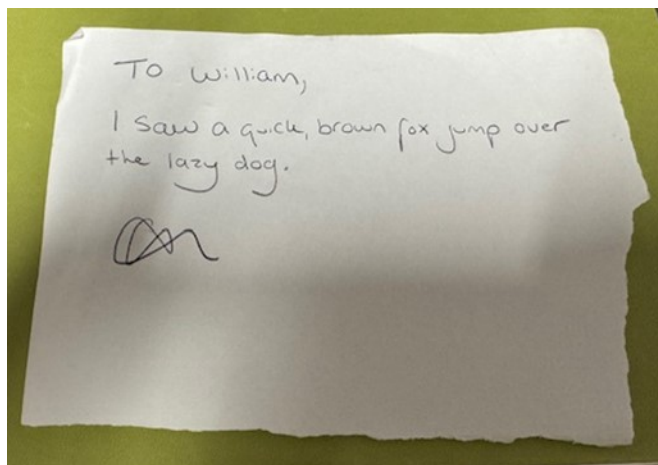 To William,
I saw a quick, brown fox jump over
the lazy dog.